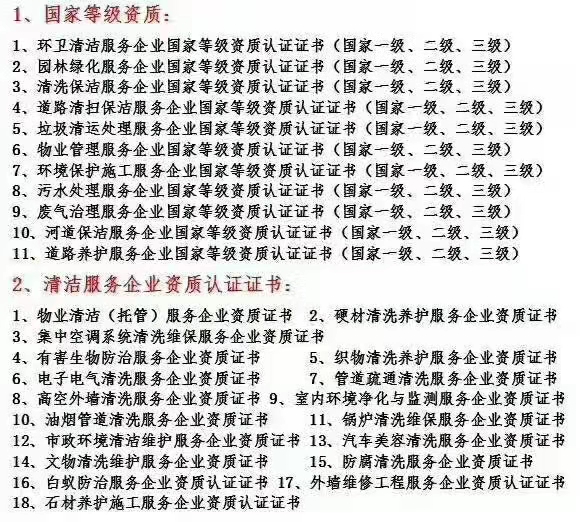 1、国家等级资质：
1、环卫清洁服务企业国家等级资质认证证书（国家一级、二级、三级）
2、园林绿化服务企业国家等级资质认证证书（国家一级、二级、三级）
3、清洗保洁服务企业国家等级资质认证证书（国家一级、二级、三级）
4、道路清扫保洁服务企业国家等级资质认证证书（国家一级、二级、三级）
5、垃圾清运处理服务企业国家等级资质认证证书（国家一级、二级、三级）
6、物业管理服务企业国家等级资质认证证书（国家一级、二级、三级）
7、环境保护施工服务企业国家等级资质认证证书（国家一级、二级、三级）
8、污水处理服务企业国家等级资质认证证书（国家一级、二级、三级）
9、废气治理服务企业国家等级资质认证证书（国家一级、二级、三级）
10、河道保洁服务企业国家等级资质认证证书（国家一级、二级、三级）
11、道路养护服务企业国家等级资质认证证书（国家一级、二级、三级）
2、清洁服务企业资质认证证书：
1、物业清洁（托管）服务企业资质证书 2、硬材清洗养护服务企业资质证书
3、集中空调系统清洗维保服务企业资质证书
4、有害生物防治服务企业资质证书 5、织物清洗养护服务企业资质证书
6、电子电气清洗服务企业资质证书 7、管道疏通清洗服务企业资质证书
8、高空外墙清洗服务企业资质证书 9、室内环境净化与监测服务企业资质证书
10、油烟管道清洗服务企业资质证书 11、锅炉清洗维保服务企业资质证书
12、市政环境清洁维护服务企业资质证书 13、汽车美容清洗服务企业资质证书
14、文物清洗维护服务企业资质证书 15、防腐清洗服务企业资质证书
16、白蚁防治服务企业资质认证证书 17、外墙维修工程服务企业资质认证证书
18、石材养护施工服务企业资质认证证书